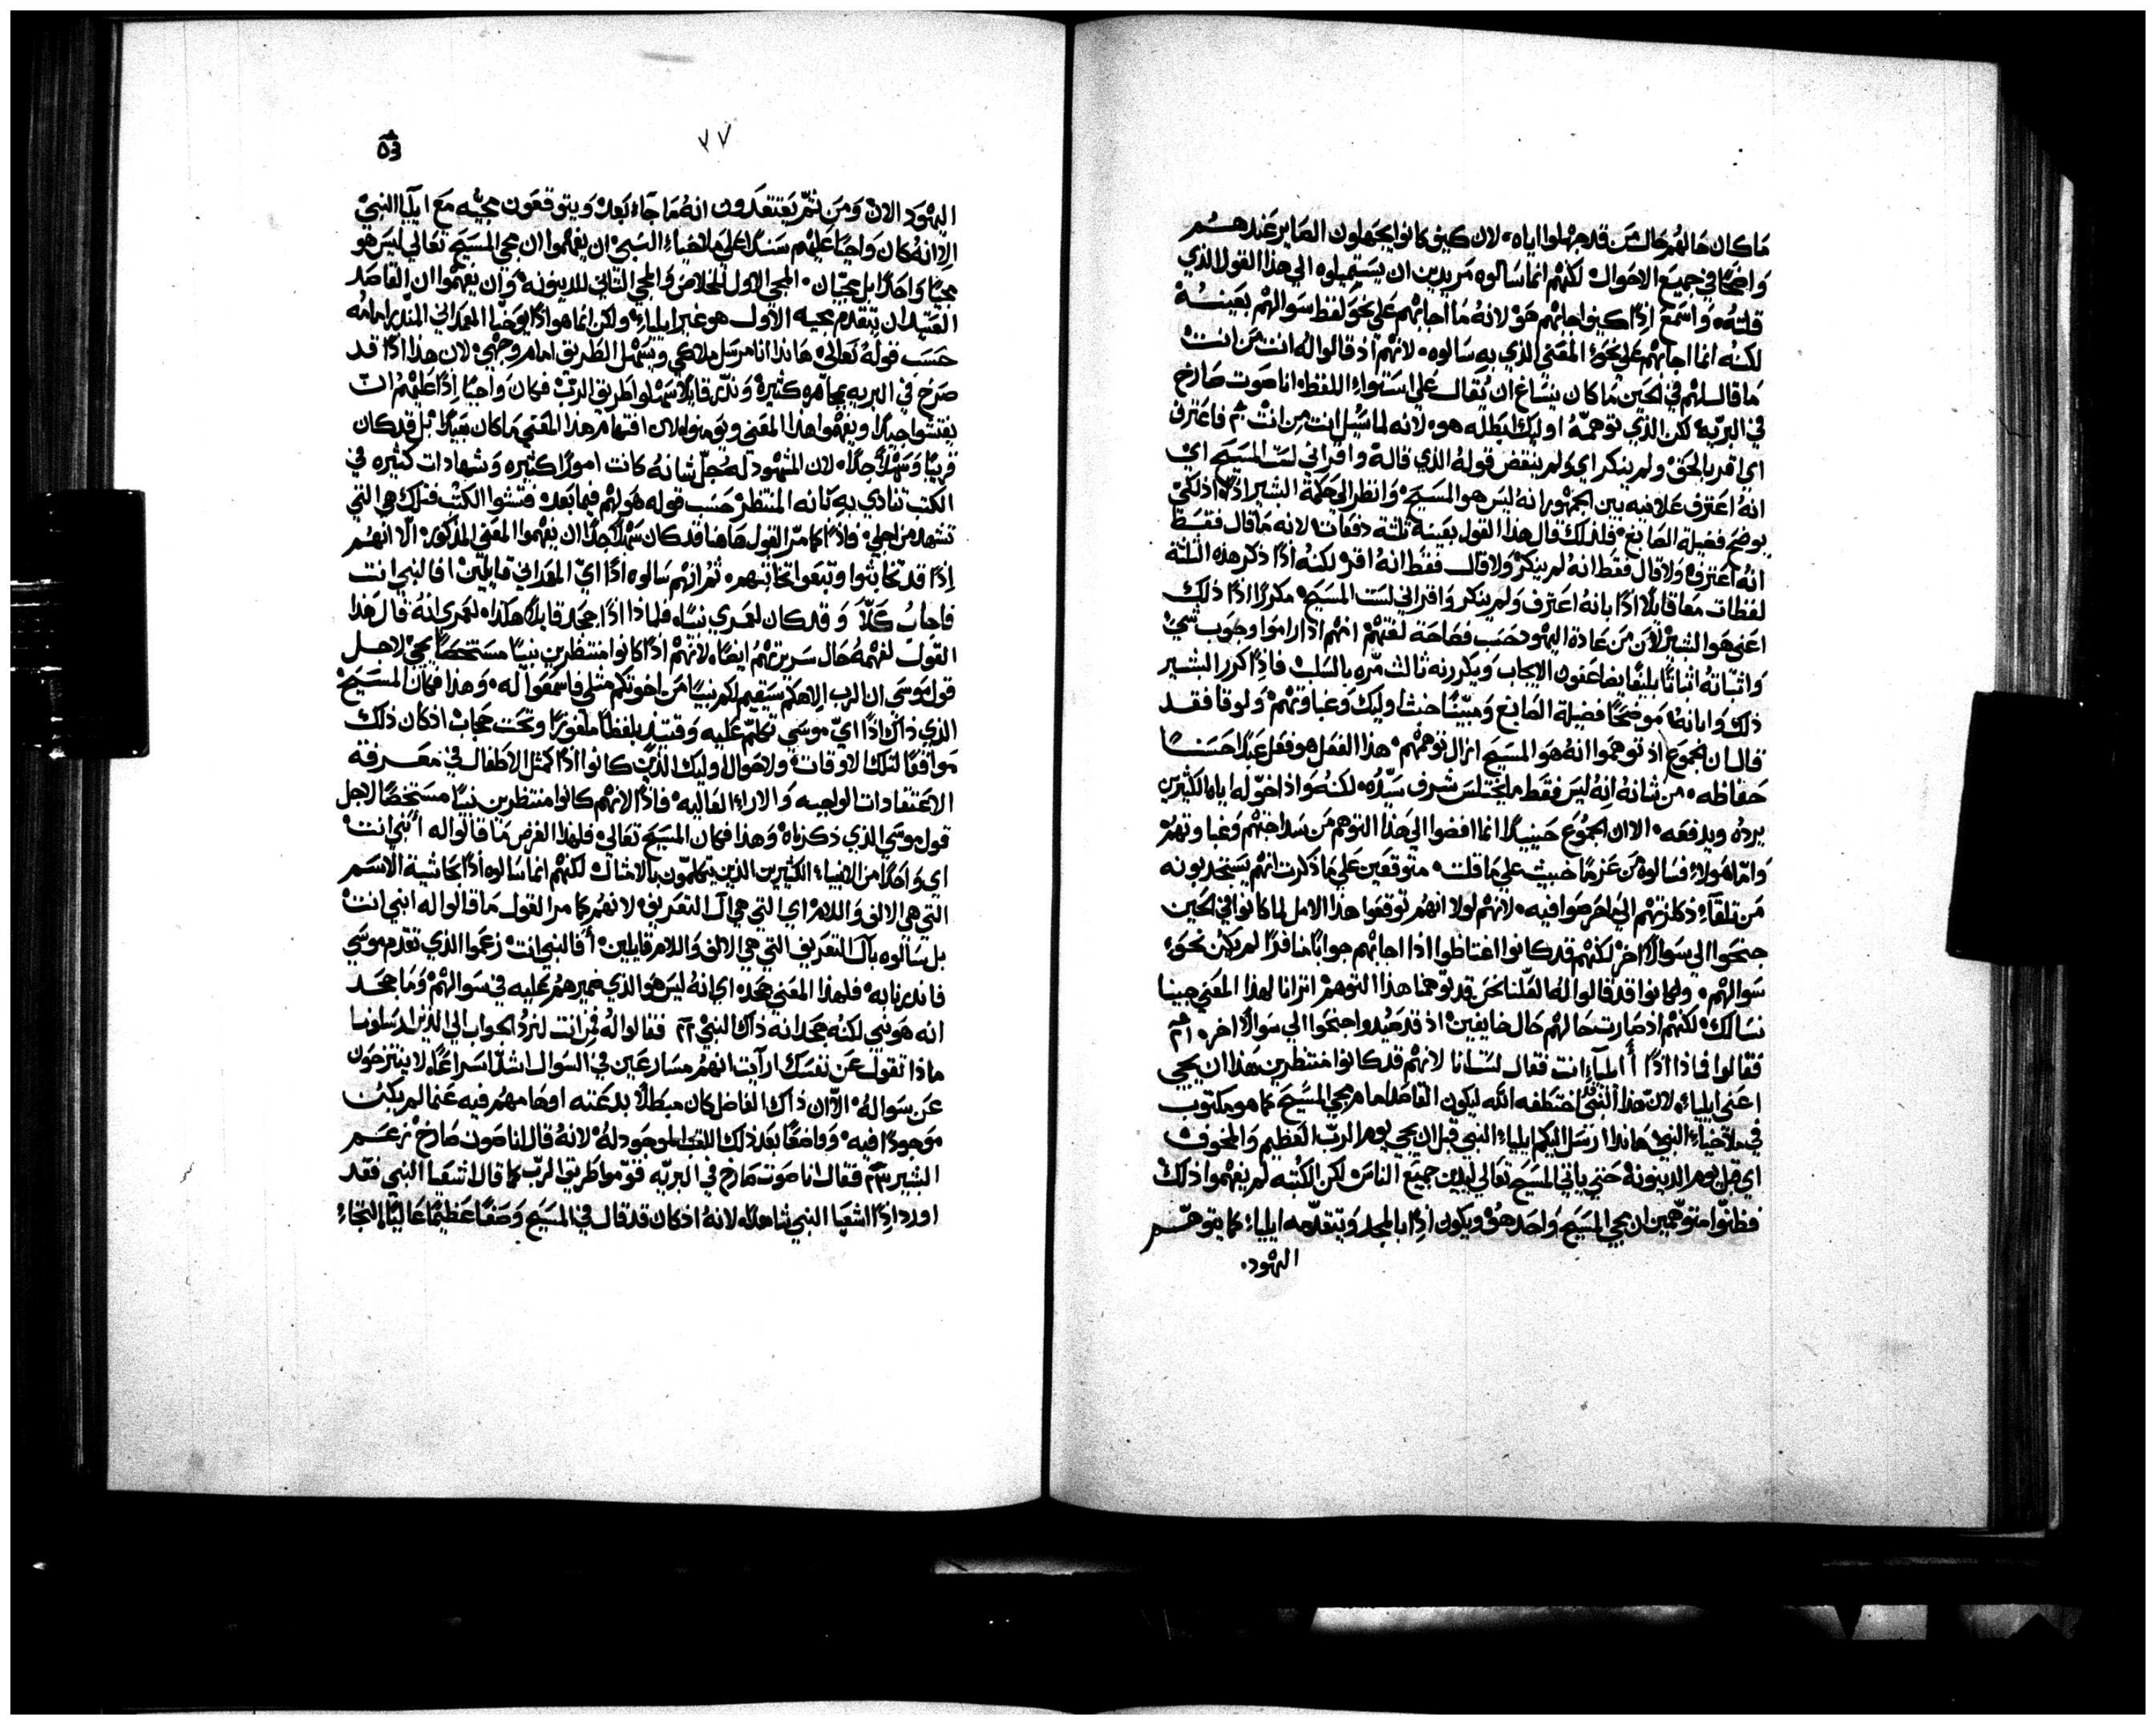 ما كان حالهم حال من قد جهلوا اياه. لان كيف كانوا يجهلون الصاير عندهم
واضحًا في جميع الاحوال لكنهم انما سالوه مريدين ان يستميلوه الي هذا القول الذي
قلته. واسمع اذًا كيف اجابهم هو لانه ما اجابهم علي نحو لفظ سوالهم بعينه
لكنه انما اجابهم علي نحو المعني الذي به سالوه. لانهم اذ قالوا له انت من انت
ما قال لهم في الحين ما كان ينساغ ان يقال علي استواء اللفظه انا صوت صارخ
في البريه لكن الذي توهمه اوليك ابطله هو. لانه لما سُيل انت من انت فاعترف
اي اقر بالحق ولم ينكر اي ولم ينقض قوله الذي قاله واقر اني لست المسيح اي
انه اعترف علانيه بين الجمهور انه ليس هو المسيح. وانظر الي حكمة البشير اذ لكي
يوضح فضيلة الصابغ. فلذلك قال هذا القول بعينه ثلثة دفعات لانه ما قال فقط
انه اعترف ولا قال فقط انه لم ينكر ولا قال فقط انه اقر لكنه اذًا ذكر هذه الثلثة
لفظات معًا قايلًا اذًا بانه اعترف ولم ينكر واقر اني لست المسيح. مكررًا اذًا ذلك
اعني هو البشير لان من عادة اليهود حسب فصاحة لغتهم انهم اذا راموا وجوب شيء
واثباته اثباتًا بليغًا يضاعفون الايجاب ويكررنه ثالث مره بالسلب فاذًا كرر البشير
ذلك وابانه موضحًا فضيلة الصابغ ومبيّنًا خبث اوليك وغباوتهم. ولوقا فقد
قال ان الجموع اذ توهموا انه هو المسيح ازال توهمهم. هذا الفعل هو فعل عبدًا حسنًا
حفاظه. من شانه انه ليس فقط ما يختلس شرف سيّده. لكنه واذا خوّله اياه الكثيرين
يرده ويدفعه. الا ان الجموع حينيذًا انما افضوا الي هذا التوهم من سذاجتهم وغباوتهم
واما هولاء فسالوه من عزمًا خبيث علي ما قلت. متوقعين علي ما ذكرت انهم يستجذبونه
من تلقاء ذكرتهم الي ما حرصوا فيه. لانهم لولا انهم توقعوا هذا الامل لما كانوا في الحين
جنحوا الي سوالًا اخر لكنهم قد كانوا اغتاظوا اذا اجابهم جوابًا منافرًا لم يكن نحو
سوالهم. ولكانوا قد قالوا له العلنا نحن قد توهمنا هذا التوهم اترانا لهذا المعني جينا
نسالك. لكنهم اذ صارت حالهم حال خايفين اذ قد صُيدوا جنحوا الي سوالًا اخر.
فقالوا فماذا اذًا أايلياء انت فقال لست انا لانهم قد كانوا منتظرين هذا ان يجي
اعني ايلياء. لان هذا النبي اختطفه الله ليكون القاصد امام مجي المسيح كما هو مكتوب
في ملاخياء النبي هانذا ارسل اليكم ايلياء النبي قبل ان يجي يوم الرب العظيم والمخوف
اي قبل يوم الدينونة حتي ياتي المسيح تعالي ليدين جميع الناس لكن الكتبه لم يفهموا ذلك
فظنّوا متوهمين ان مجي المسيح واحد هو ويكون اذًا بالمجد ويتقدّمه ايلياء كما يتوهّم
اليهود.
٧٧
اليهود الان ومن ثمّ يعتقدون انه ما جاء بعد ويتوقعون مجيّه مع ايليا النبي
الا انه كان واجبًا عليهم سندًا علي ملاخياء النبي ان يفهموا ان مجي المسيح تعالي ليس هو
مجيًا واحدًا بل مجيّان. المجي الاول للخلاص والمجي الثاني للدينونه. وان يفهموا ان القاصد
العتيد ان يتقدم مجيه الاول هو غير ايلياء. ولكن انما هو اذًا يوحنا المعمداني المنذر امامه
حسب قوله تعالي هانذا انا مرسل ملاكي ويسهل الطريق امام وجهي. لان هذا اذًا قد
صرخ في البريه بجاهره كثيرة ونذر قايلًا سهلوا طريق الرب فكان واجبًا اذًا عليهم ان
يفتشوا جيدًا ويفهموا هذا المعني ويومنوا به لان افتهام هذا المعني ما كان بعيدًا بل قد كان
قريبًا وسهلًا جدًا. لان المشهود له جلّ شانه كانت امورًا كثيره وشهادات كثيره في
الكتب تنادي به بانه المنتظر حسب قوله هو لهم فيما بعد فتشوا الكتب فتلك هي التي
تشهد من اجلي. فاذًا كما مرّ القول هاهنا قد كان سهلًا جدًا ان يفهموا المعني المذكور. الا انهم
اذًا قد تخابثوا وتبعوا تخابثهم. ثم انهم سالوه اذًا ايّ المعمداني قايلين افالنبي انت
فاجاب كلّا وقد كان لعمري نبيًا. فلماذا اذًا جحد قايلًا هكذا. لعمري انه قال هذا
القول لفهمه حال سريرتهم ايضًا. لانهم اذًا كانوا منتظرين نبيًا مستخصًا يجي لاجل
قول موسي ان الرب الاهكم سيقيم لكم نبيًا من اخوتكم مثلي فاسمعوا له. وهذا فكان المسيح
الذي ذاك اذًا ايّ موسي تكلم عليه وقتيذ بلفظًا ملغوزًا وتحت حجاب اذ كان ذلك
موافقًا لتلك الاوقات ولاحوال اوليك الذين كانوا اذًا كمثل الاطفال في معرفة
الاعتقادات الواجبه والاراء العاليه. فاذًا لانهم كانوا منتظرين نبيًا مستخصًا لاجل
قول موسي الذي ذكرناه وهذا فكان المسيح تعالي فلهذا الغرض ما قالوا له أنبي انت
اي واحدًا من الانبياء الكثيرين الذين يتكلمون بالامثال لكنهم انما سالوه اذًا بحاشية الاسم
التي هي الالف واللام اي التي هي ال التعريف لانهم كما مر القول ما قالوا له انبي انت
بل سالوه بال التعريف التي هي الالف واللام قايلين أفالنبي انت زعموا الذي تقدم موسي
فانذرنا به. فلهذا المعني جحد اي انه ليس هو الذي ضميرهم عليه في سوالهم وما جحد
انه هو نبي لكنه جحد انه ذاك النبي. فقالوا له فمن انت لنرد الجواب الي الذين ارسلونا
ماذا تقول عن نفسك ارايت انهم مسارعين في السوال اشدّ اسراعًا. لا ينتزحون
عن سواله. الا ان ذاك الفاضل كان مبطلًا بدعته اوهامهم فيه عنما لم يكن
موجودًا فيه. وواضعًا بعد ذلك اللفظ الموجود له. لانه قال انا صوت صارخ زعم
البشير فقال انا صوت صارخ في البريّه قوّموا طريق الرب كما قال اشعيا النبي فقد
اورد اذًا اشعيا النبي شاهدًا. لانه اذ كان قد قال في المسيح وصفًا عظيمًا عاليًا التجاء